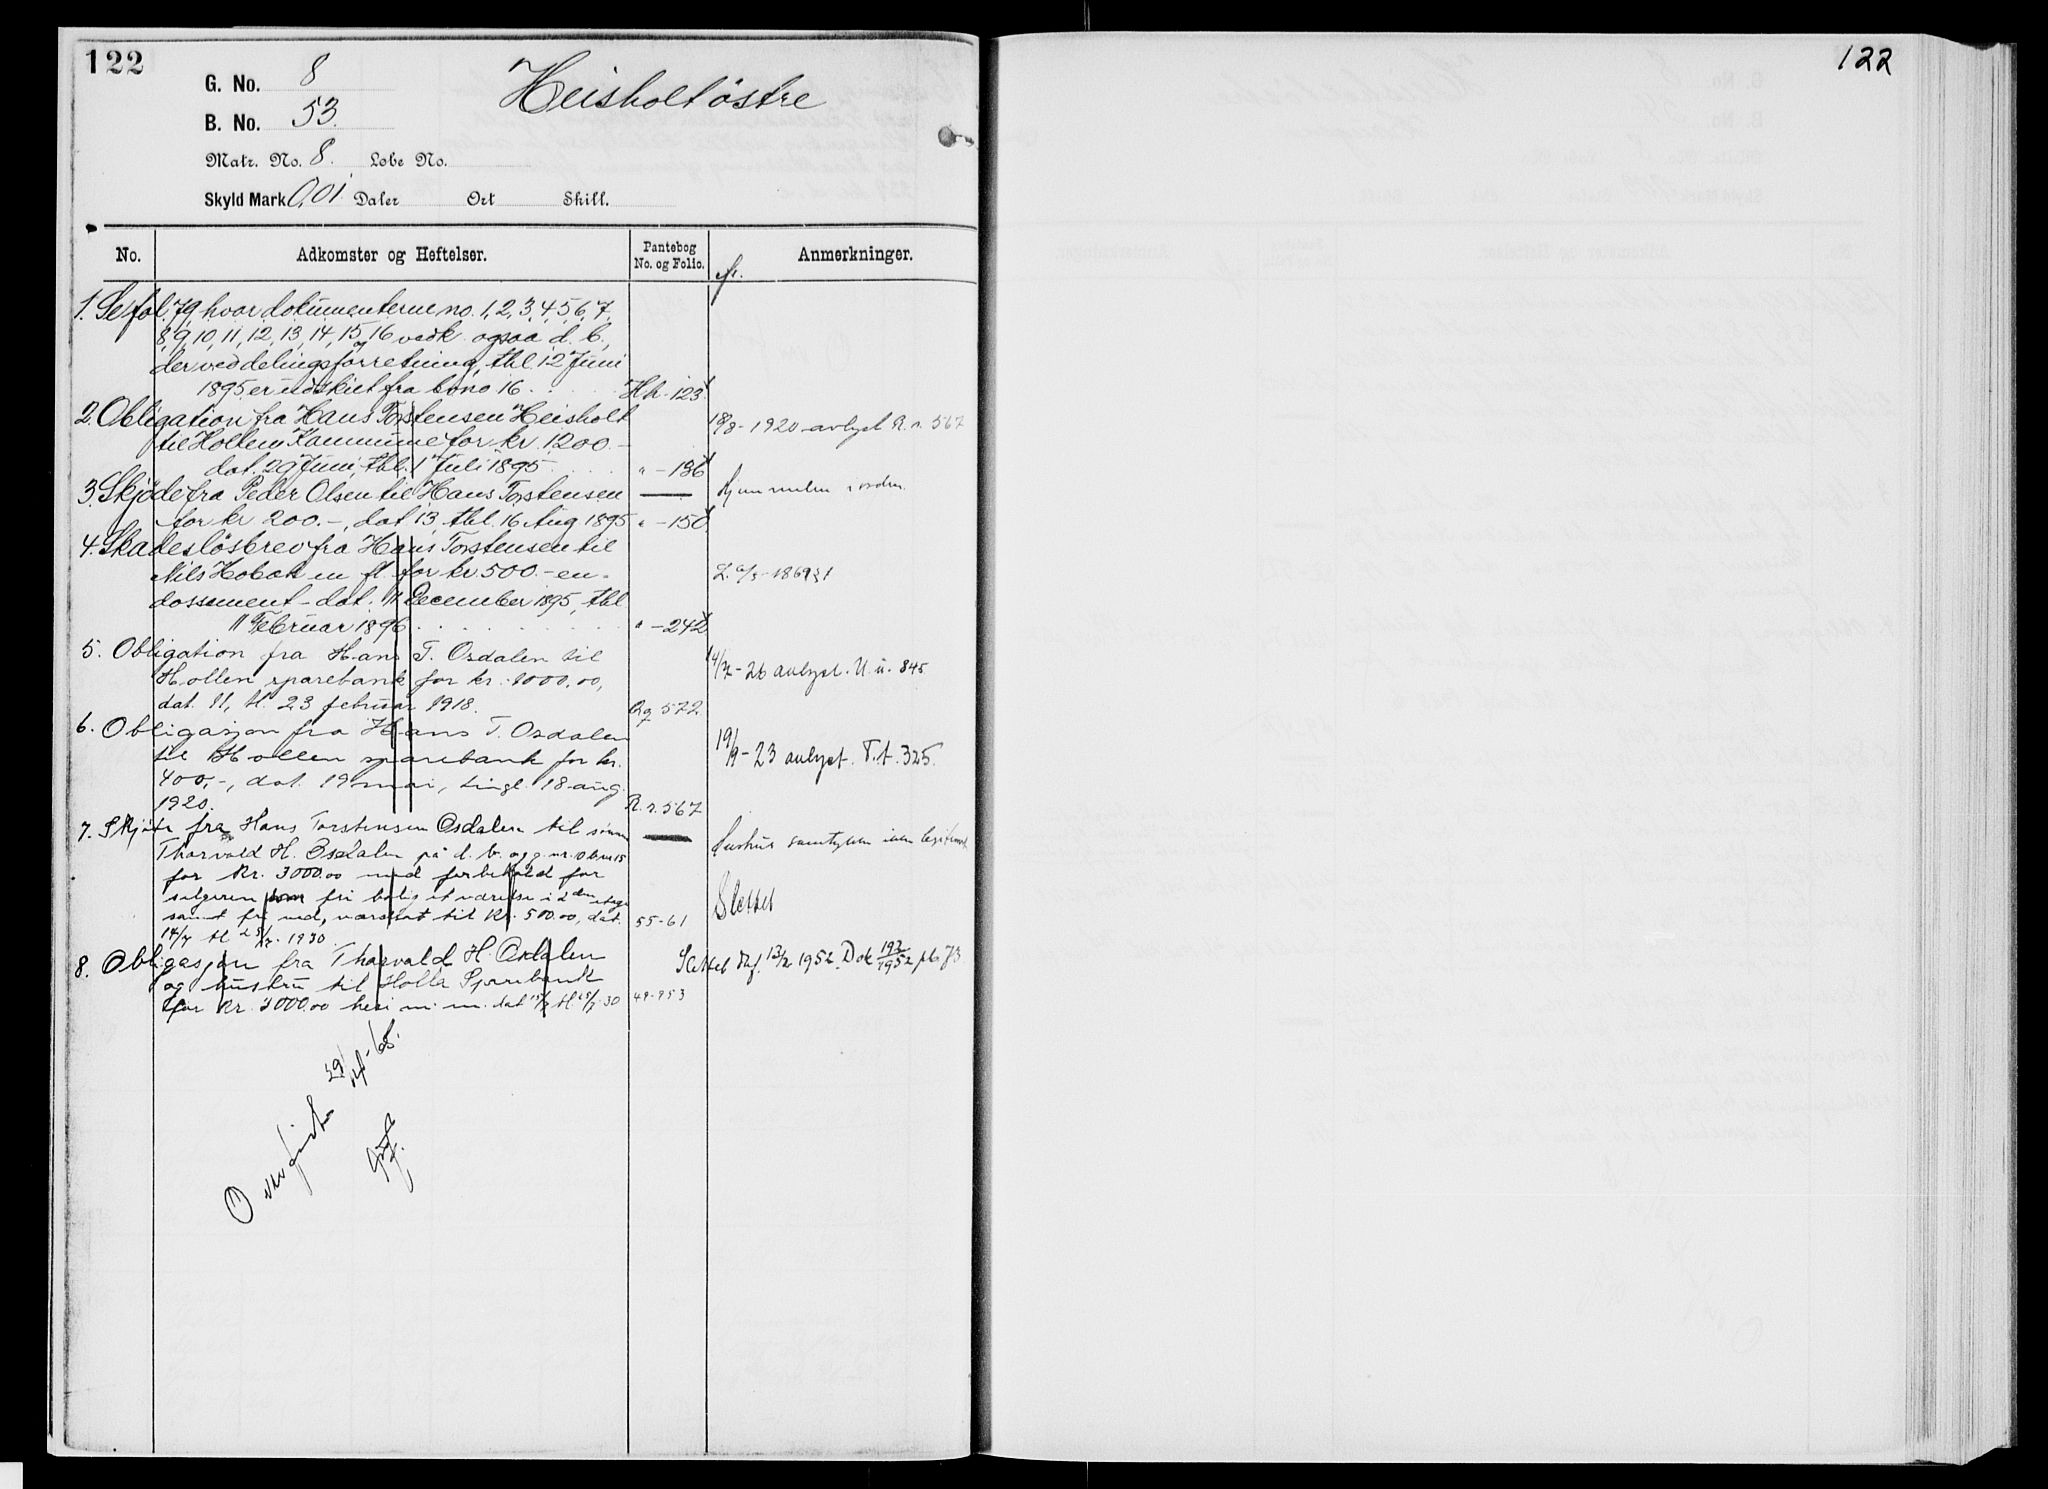 122
G. No. 8
Heisholt östre
B. No. 53.
Matr. No. 8. Löbe No.
Skyld Mark 0,01 Daler Ort Skill.
No. Adkomster og Heftelser. Pantebog No. og Folio. Anmerkninger.
1. Se fol. 79, hvor dokumenterne no. 1, 2, 3, 4, 5, 6, 7,
8, 9, 10, 11, 12, 13, 14, 15 og 16 vedk. ogsaa d. b.,
der ved delingsforretning, tbl. 12 Juni
1895 er udskiet fra bno 16. H.h. 123.
2. Obligation fra Hans Torstensen Heisholt
til Hollen Kommune for kr. 1200.-
dat. 29 Juni, tbl. 1 Juli 1895. " - 136
18/8 - 1920 avlyst R. r. 567
3. Skjöde fra Peder Olsen til Hans Torstensen
for kr 200.-, dat 13, tbl. 16 Aug 1895 " - 150.
Hjemmelen i orden.
4. Skadeslösbrev fra Hans Torstensen til
Nils Hobæk m fl. for kr. 500.- en-
dossement - dat. 11 December 1895, tbl
11 Februar 1896 " - 242
5. Obligation fra Hans T. Osdalen til
Hollen sparebank for kr. 1000,00,
dat. 11, tl. 23 februar 1918. Qq 572
- 26 avlyst. U. u. 845
6. Obligasjon fra Hans T. Osdalen
til Hollen sparebank for kr.
400,-, dat. 19 mai, tingl. 18 aug.
1920. R. r. 567
19/9 - 23 avlyst. T. t. 325.
7. Skjøte fra Hans Torstensen Osdalen til sønnen
Thorvald H. Osdalen på d. b. og g. nr.
for Kr. 3000.00 med forbehold for
selgeren fri bolig et værelse i 2den etage
samt fri ved, værdsat til Kr. 500.00, dat.
14/7 tl 25/7. 1930. 55-61
Hustrus samtykke ikke legitimert
Slettet
8. Obligasjon fra Thorvald H. Osdalen
og hustru til Holla Sparebank
for Kr. 3000.00 heri m. m. dat 14/7 tl 25/7 30 49-953
Slettet 13/2 1952. Dok 193/1952
Overført 29/
122